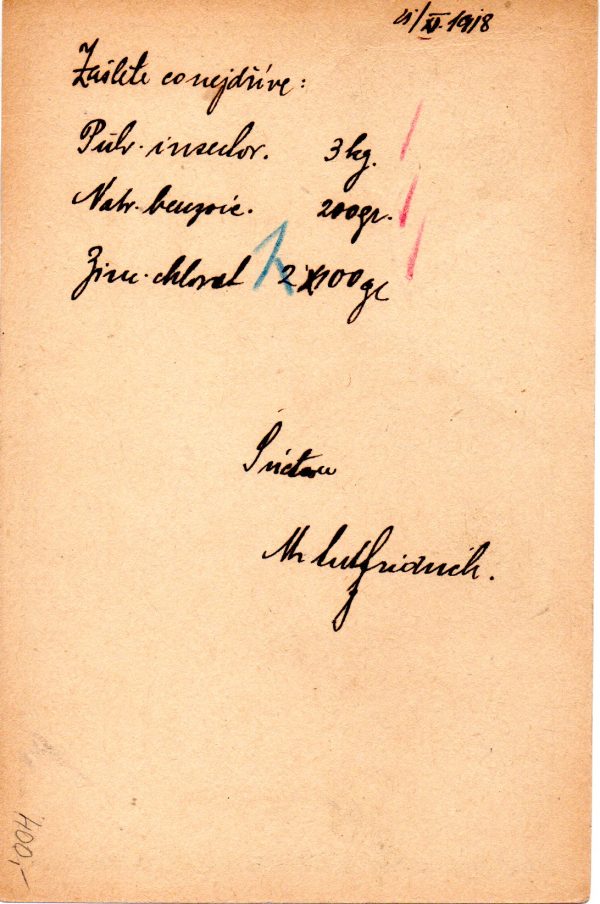 /XI. 1918
Zašlete conejdříve:
Pulv. insector. 3 kg.
Natr. benzoic. 200 gr.
Zinc. chlorat 2 x 100 gr
S úctou
Fridrich.
400,-